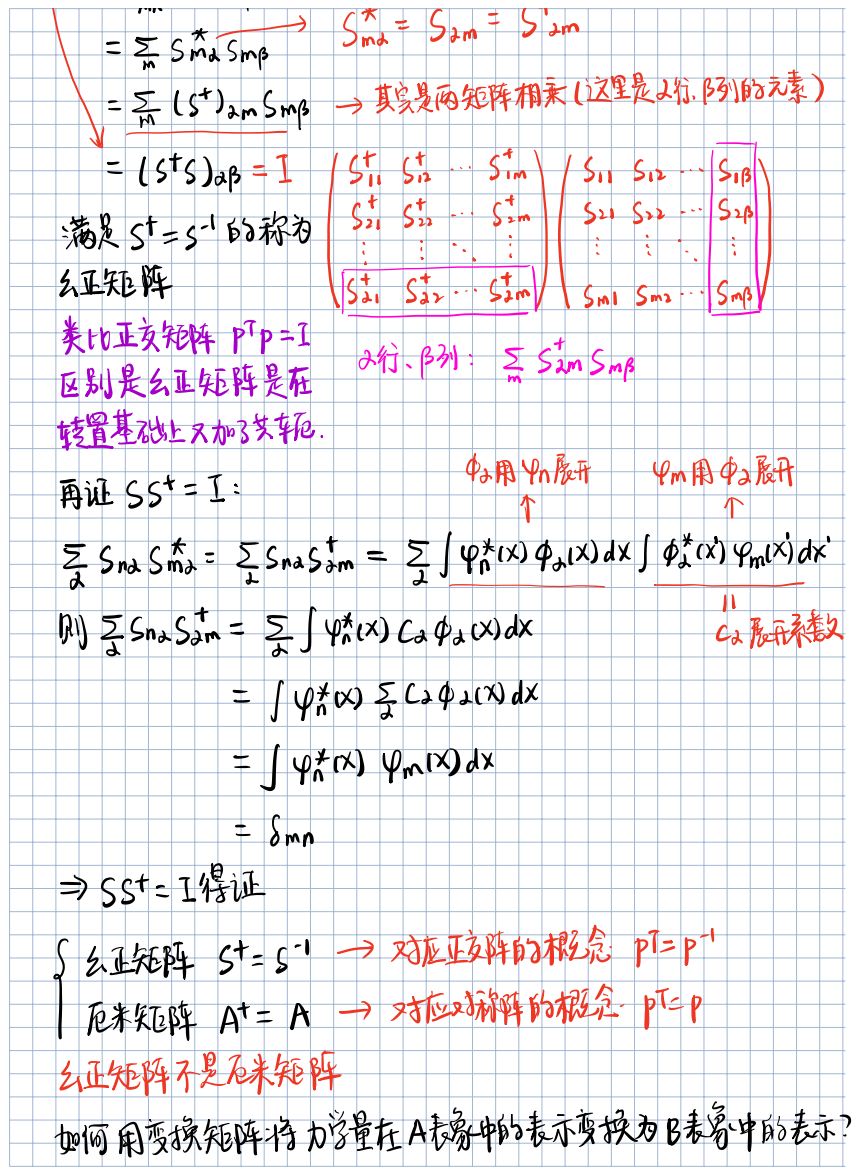 = Σ_m S*_mα S_mβ
S*_mα = S_αm = S'_αm
= Σ_m (S⁺)_αm S_mβ → 其实是两矩阵相乘(这里是α行、β列的元素)
= (S⁺S)_αβ = I
满足 S⁺=S⁻¹ 的称为
幺正矩阵
S⁺₁₁ S⁺₁₂ ⋯ S⁺₁m
S⁺₂₁ S⁺₂₂ ⋯ S⁺₂m
⋮ ⋮ ⋱ ⋮
S⁺α₁ S⁺α₂ ⋯ S⁺αm
S₁₁ S₁₂ ⋯ S₁β
S₂₁ S₂₂ ⋯ S₂β
⋮ ⋮ ⋱ ⋮
Sm₁ Sm₂ ⋯ Smβ
类比正交矩阵 PᵀP=I
区别是幺正矩阵是在
转置基础上又加了共轭.
α行、β列: Σ_m S⁺_αm S_mβ
φα用ψn展开
ψm用φα展开
再证 SS⁺=I:
Σ_α S_nα S*_mα = Σ_α S_nα S⁺_αm = Σ_α ∫ψ*_n(x) φ_α(x)dx ∫φ*_α(x') ψ_m(x')dx'
则 Σ_α S_nα S⁺_αm = Σ_α ∫ψ*_n(x) C_α φ_α(x)dx
Cα展开系数
= ∫ψ*_n(x) Σ_α C_α φ_α(x)dx
= ∫ψ*_n(x) ψ_m(x)dx
= δ_mn
⇒ SS⁺=I得证
幺正矩阵 S⁺=S⁻¹ → 对应正交阵的概念. Pᵀ=P⁻¹
厄米矩阵 A⁺=A → 对应对称阵的概念. Pᵀ=P
幺正矩阵不是厄米矩阵
如何用变换矩阵将力学量在A表象中的表示变换为B表象中的表示?